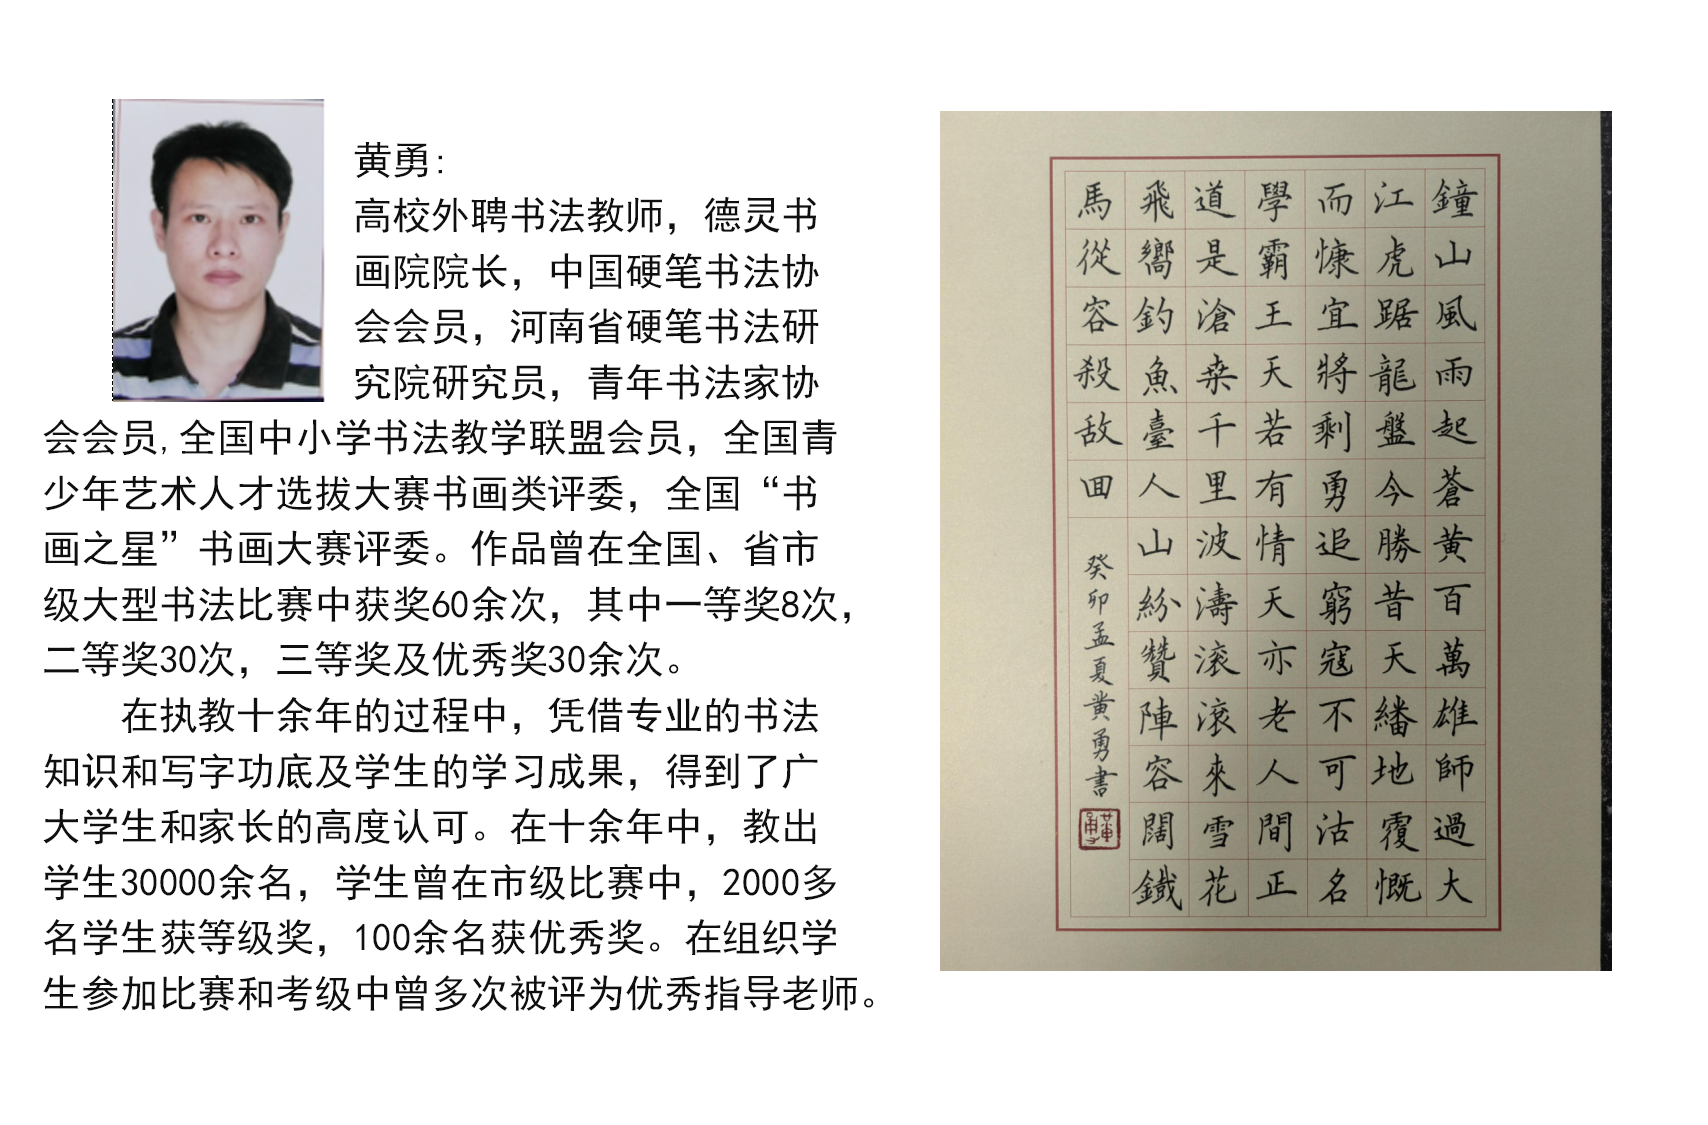 黄勇:
高校外聘书法教师，德灵书
画院院长，中国硬笔书法协
会会员，河南省硬笔书法研
究院研究员，青年书法家协
会会员,全国中小学书法教学联盟会员，全国青
少年艺术人才选拔大赛书画类评委，全国“书
画之星”书画大赛评委。作品曾在全国、省市
级大型书法比赛中获奖60余次，其中一等奖8次，
二等奖30次，三等奖及优秀奖30余次。
在执教十余年的过程中，凭借专业的书法
知识和写字功底及学生的学习成果，得到了广
大学生和家长的高度认可。在十余年中，教出
学生30000余名，学生曾在市级比赛中，2000多
名学生获等级奖，100余名获优秀奖。在组织学
生参加比赛和考级中曾多次被评为优秀指导老师。
鐘山風雨起蒼黃百萬雄師過大
江虎踞龍盤今勝昔天繙地覆慨
而慷宜將剩勇追窮寇不可沽名
學霸王天若有情天亦老人間正
道是滄桒千里波濤滚滚來雪花
飛嚮釣魚臺人山紛贊陣容闊鐵
馬從容殺敌囬
癸卯孟夏黄勇書